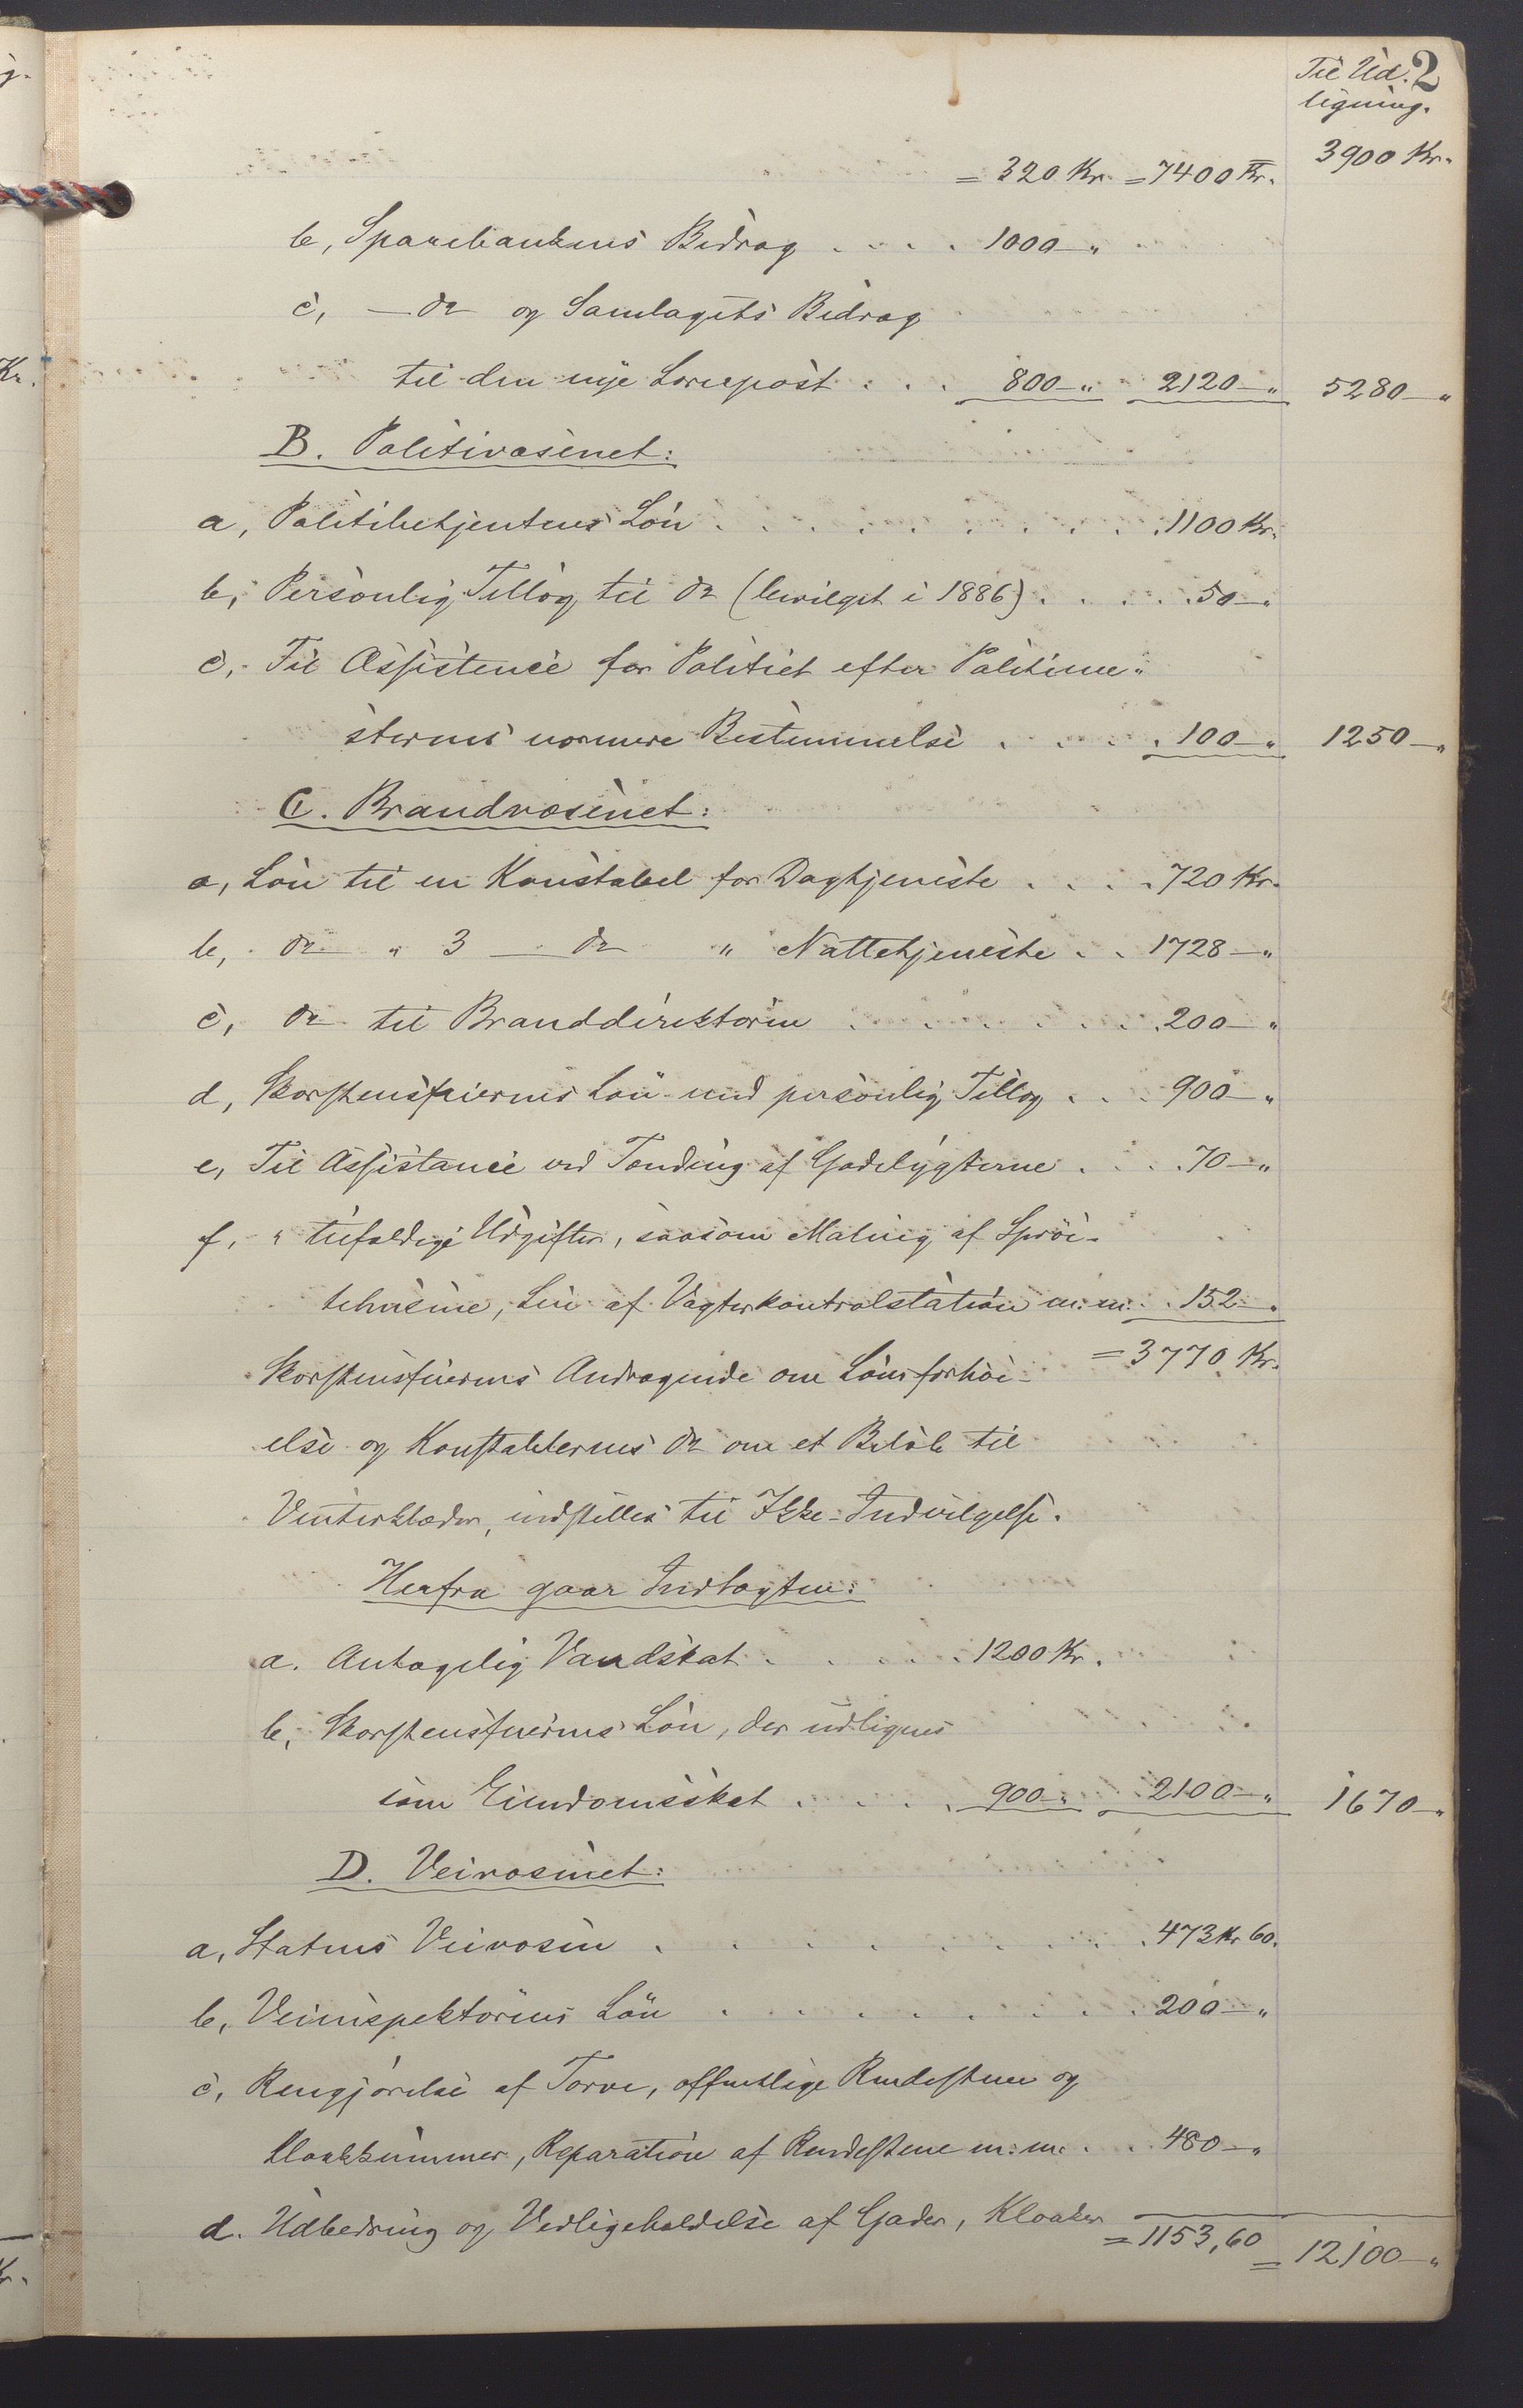 2
Til Ud-
ligning.
= 320 Kr. = 7400 Kr. 3900 Kr.
b, Sparebankens Bidrag . . . . 1000 – "
c, – do og Samlagets Bidrag
til den nye Lærepost . . . 800 – " 2120 – " 5280 – "
B. Politivæsenet:
a, Politibetjentens Løn . . . . . . . . . . 1100 Kr.
b, Personlig Tillæg til do (bevilget i 1886) . . . . . 50 – "
c, Til Assistence for Politiet efter Politime-
sterens nærmere Bestemmelse . . . . . 100 – " 1250 – "
C. Brandvæsenet:
a, Løn til en Konstabel for Dagtjeneste . . . . 720 Kr.
b, do " 3 – do " Nattetjeneste . . 1728 – "
c, do til Branddirektøren . . . . . . . . 200 – "
d, Skorstensfeierens Løn med personlig Tillæg . . . 900 – "
e, Til Assistance ved Tænding af Gadelygterne . . . . 70 – "
f, " tilfældige Udgifter, saasom Maling af Sprøi-
tehusene, Leie af Vægterkontrolstation m. m. . . 152 – "
= 3770 Kr.
Skorstensfeierens Andragende om Lønsforhøi-
else og Konstablernes do om et Beløb til
Vinterklæder, indstilles til Ikke-Indvilgelse.
Herfra gaar Indtægten:
a. Antagelig Vandskat . . . . . . 1200 Kr.
b, Skorstensfeierens Løn, der udlignes
som Eiendomsskat . . . . . 900 – " 2100 – " 1670 – "
D. Veivæsenet:
a, Statens Veivæsen . . . . . . . . . . 473 Kr 60.
b, Veiinspektørens Løn . . . . . . . . . 200 – "
c, Rengjørelse af Torve, offentlige Rendestene og
Kloakkummer, Reparation af Rendestene m. m. . . 480 – "
d. Udbedring og Vedligeholdelse af Gader, Kloaker
= 1153,60 = 12100 – "